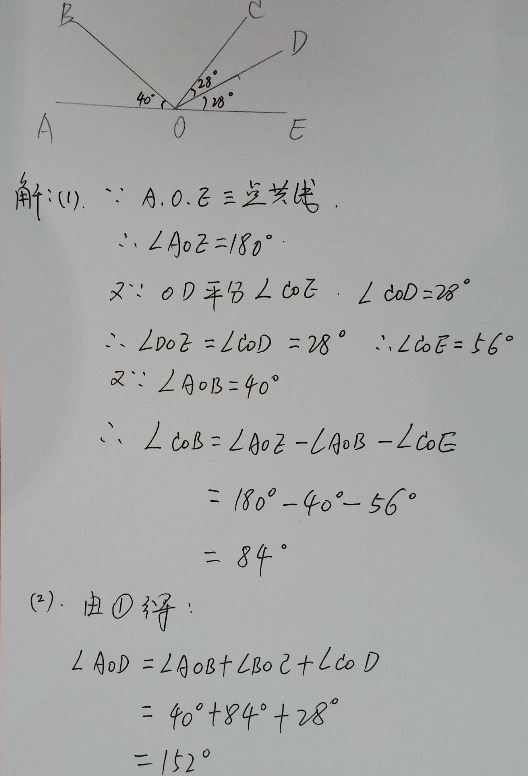 B
C
D
28°
40°
28°
A
O
E
解:(1). ∵ A.O.E三点共线.
∴ ∠AOE=180°.
又∵ OD平分∠COE. ∠COD=28°
∴ ∠DOE=∠COD=28° ∴∠COE=56°
又∵ ∠AOB=40°
∴ ∠COB=∠AOE-∠AOB-∠COE
=180°-40°-56°
=84°
(2). 由①得:
∠AOD=∠AOB+∠BOC+∠COD
=40°+84°+28°
=152°